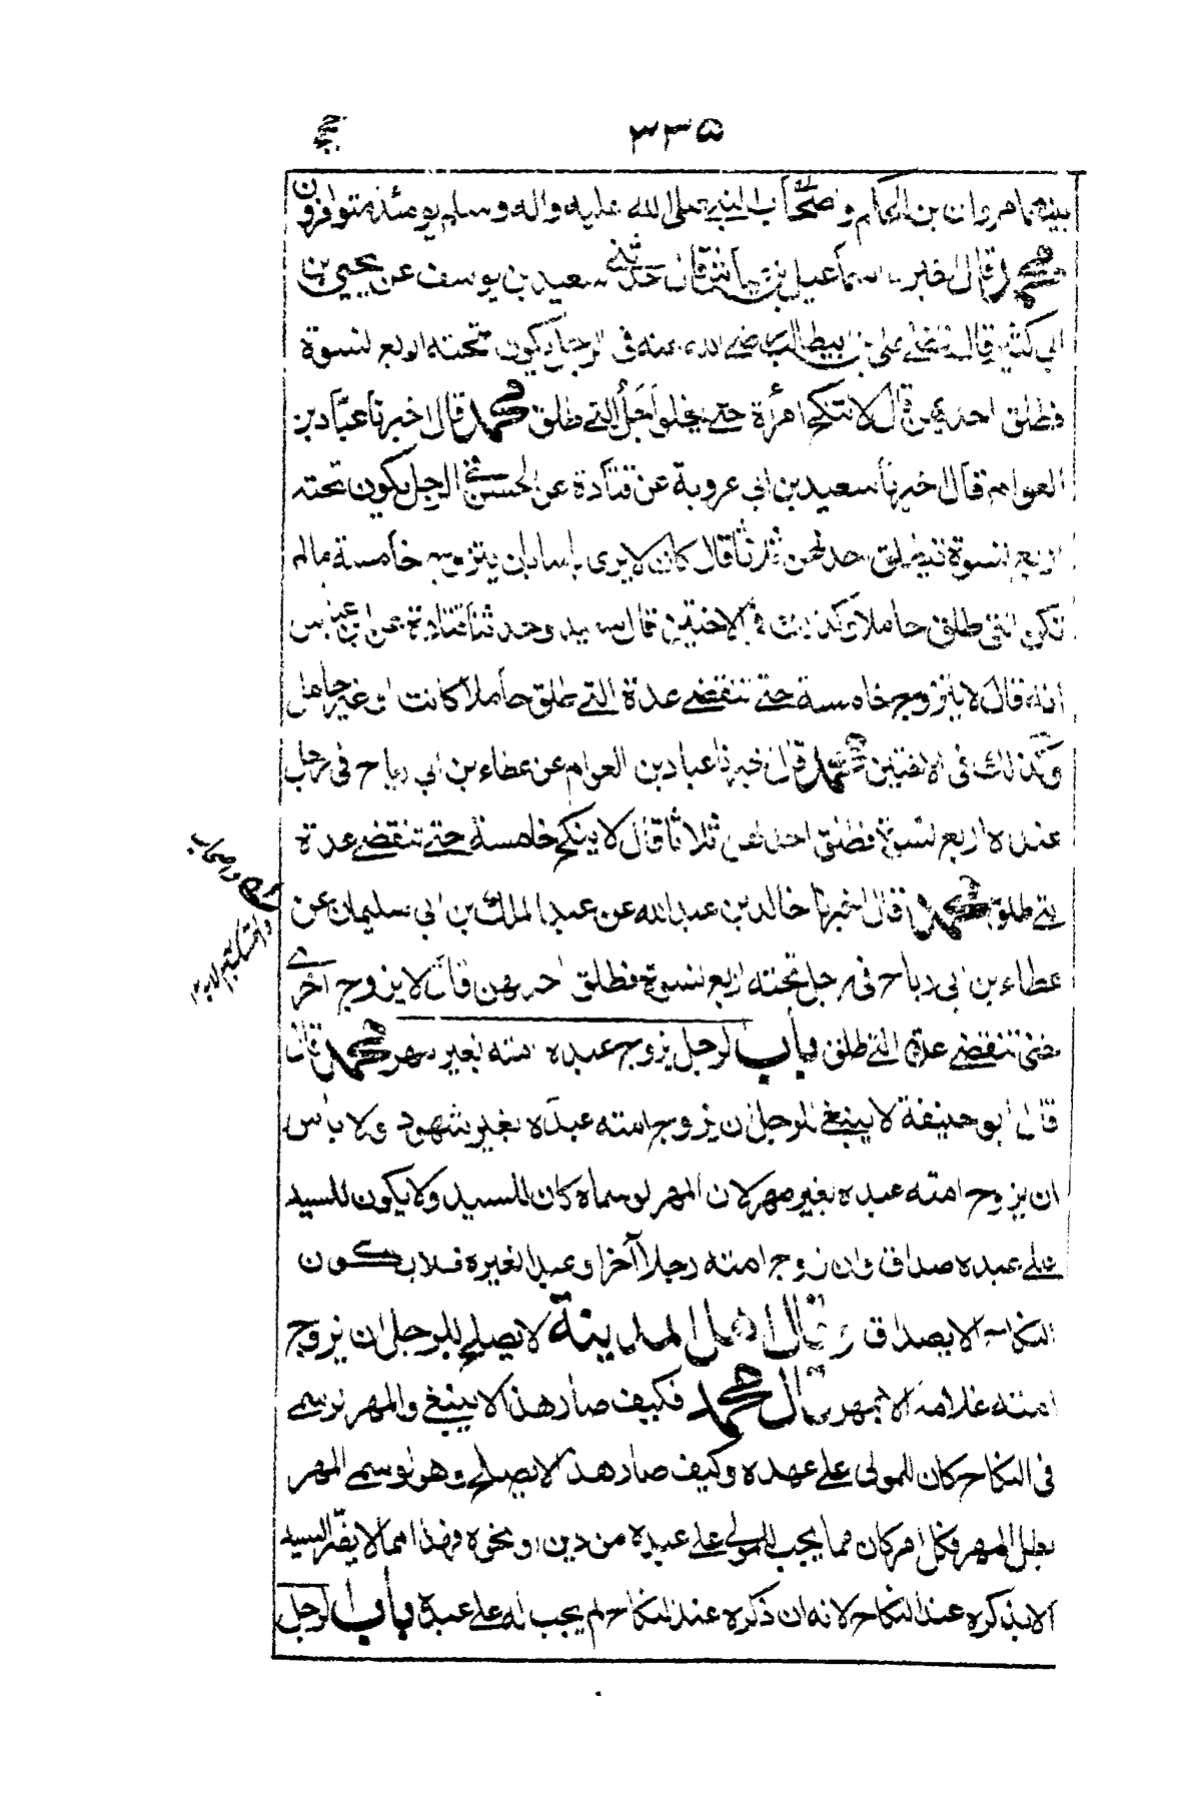 ٣٣٥
بينهما مروان بن الحكم واصحاب النبي صلى الله عليه واله وسلم يومئذ متوافرون
محمد قال اخبرنا اسماعيل بن عياش قال حدثني سعيد بن يوسف عن يحيى بن
ابي كثير قال قضى علي بن ابيطالب رضي الله عنه في الرجل يكون تحته اربع نسوة
فطلق احداهن قال لا تنكح امرأة حتى يخلو اجل التي طلق محمد قال اخبرنا عباد بن
العوام قال اخبرنا سعيد بن ابي عروبة عن قتادة عن الحسن في الرجل يكون تحته
اربع نسوة فيطلق احدهن ثلاثا قال كان لا يرى باسا بان يتزوج خامسة مالم
تكن التي طلق حاملا وكذلك في الاختين قال سعيد وحدثنا قتادة عن ابن عباس
انه قال لا يتزوج خامسة حتى تنقضي عدة التي طلق حاملا كانت او غير حامل
وكذلك في الاختين محمد قال اخبرنا عباد بن العوام عن عطاء بن ابي رباح في رجل
عنده اربع نسوة فطلق احداهن ثلاثا قال لا ينكح خامسة حتى تنقضي عدة
التي طلق محمد قال اخبرنا خالد بن عبد الله عن عبد الملك بن ابي سليمان عن
عطاء بن ابي رباح في رجل تحته اربع نسوة فطلق احدهن قال لا يزوج اخرى
حتى تنقضي عدة التي طلق باب الرجل يزوج عبده امته بغير مهر محمد قال
قال ابو حنيفة لا ينبغي للرجل ان يزوج امته عبده بغير شهود ولا باس
ان يزوج امته عبده بغير مهر لان المهر لو سماه كان للسيد ولا يكون للسيد
على عبده صداق وان زوج امته رجلا آخرا وعبد الغيره فلا يكون
النكاح الا بصداق وقال اهل المدينة لا يصلح للرجل ان يزوج
امته غلامه الا بمهر قال محمد فكيف صار هذا لا ينبغي والمهر لو سمي
في النكاح كان للمولى على عهده وكيف صار هذا لا يصلح وهو لو سمى المهر
بطل المهر فكل امر كان مما يجب للمولى على عبده من دين او نحوه فهذا مما لا يضر السيد
الا يذكره عند النكاح لانه ان ذكره عند النكاح لم يجب له على عبده باب الرجل